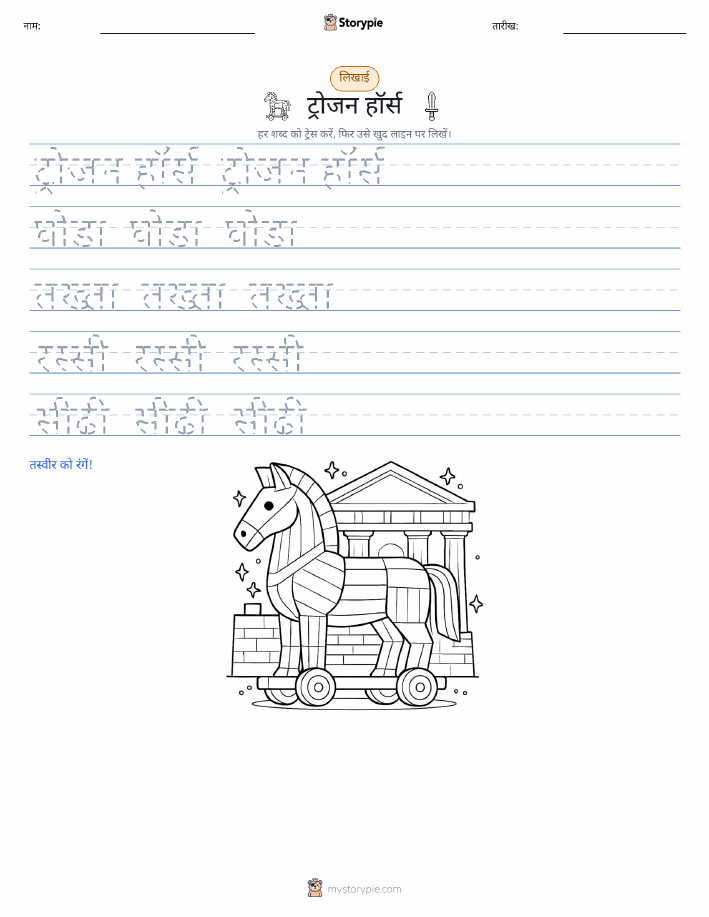 नाम:
Storypie
तारीख:
लिखाई
ट्रोजन हॉर्स
हर शब्द को ट्रेस करें, फिर उसे खुद लाइन पर लिखें।
ट्रोजन हॉर्स ट्रोजन हॉर्स
घोडा घोडा घोडा
तख्ता तख्ता तख्ता
रस्सी रस्सी रस्सी
सीढी सीढी सीढी
तस्वीर को रंगें!
mystorypie.com